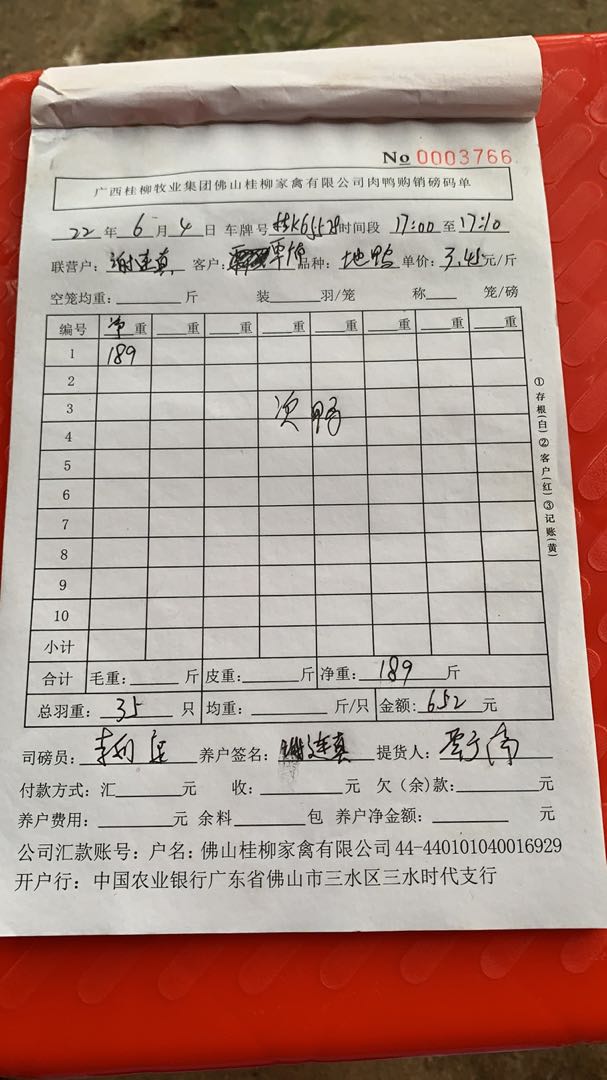 No 0003766
广西桂柳牧业集团佛山桂柳家禽有限公司肉鸭购销磅码单
22 年 6 月 4 日 车牌号 时间段 17:00 至 17:10
联营户: 谢连真 客户: 品种: 地鸭 单价: 3.45 元/斤
空笼均重: 斤 装 羽/笼 称 笼/磅
编号 净重 重 重 重 重 重 重 重
1 189
2
3 次鸭
4
5
6
7
8
9
10
小计
合计 毛重: 斤 皮重: 斤 净重: 189 斤
总羽重: 35 只 均重: 斤/只 金额: 652 元
司磅员: 养户签名: 谢连真 提货人:
付款方式: 汇 元 收: 元 欠(余)款: 元
养户费用: 元 余料 包 养户净金额: 元
公司汇款账号: 户名: 佛山桂柳家禽有限公司 44-440101040016929
开户行: 中国农业银行广东省佛山市三水区三水时代支行
①存根(白)②客户(红)③记账(黄)